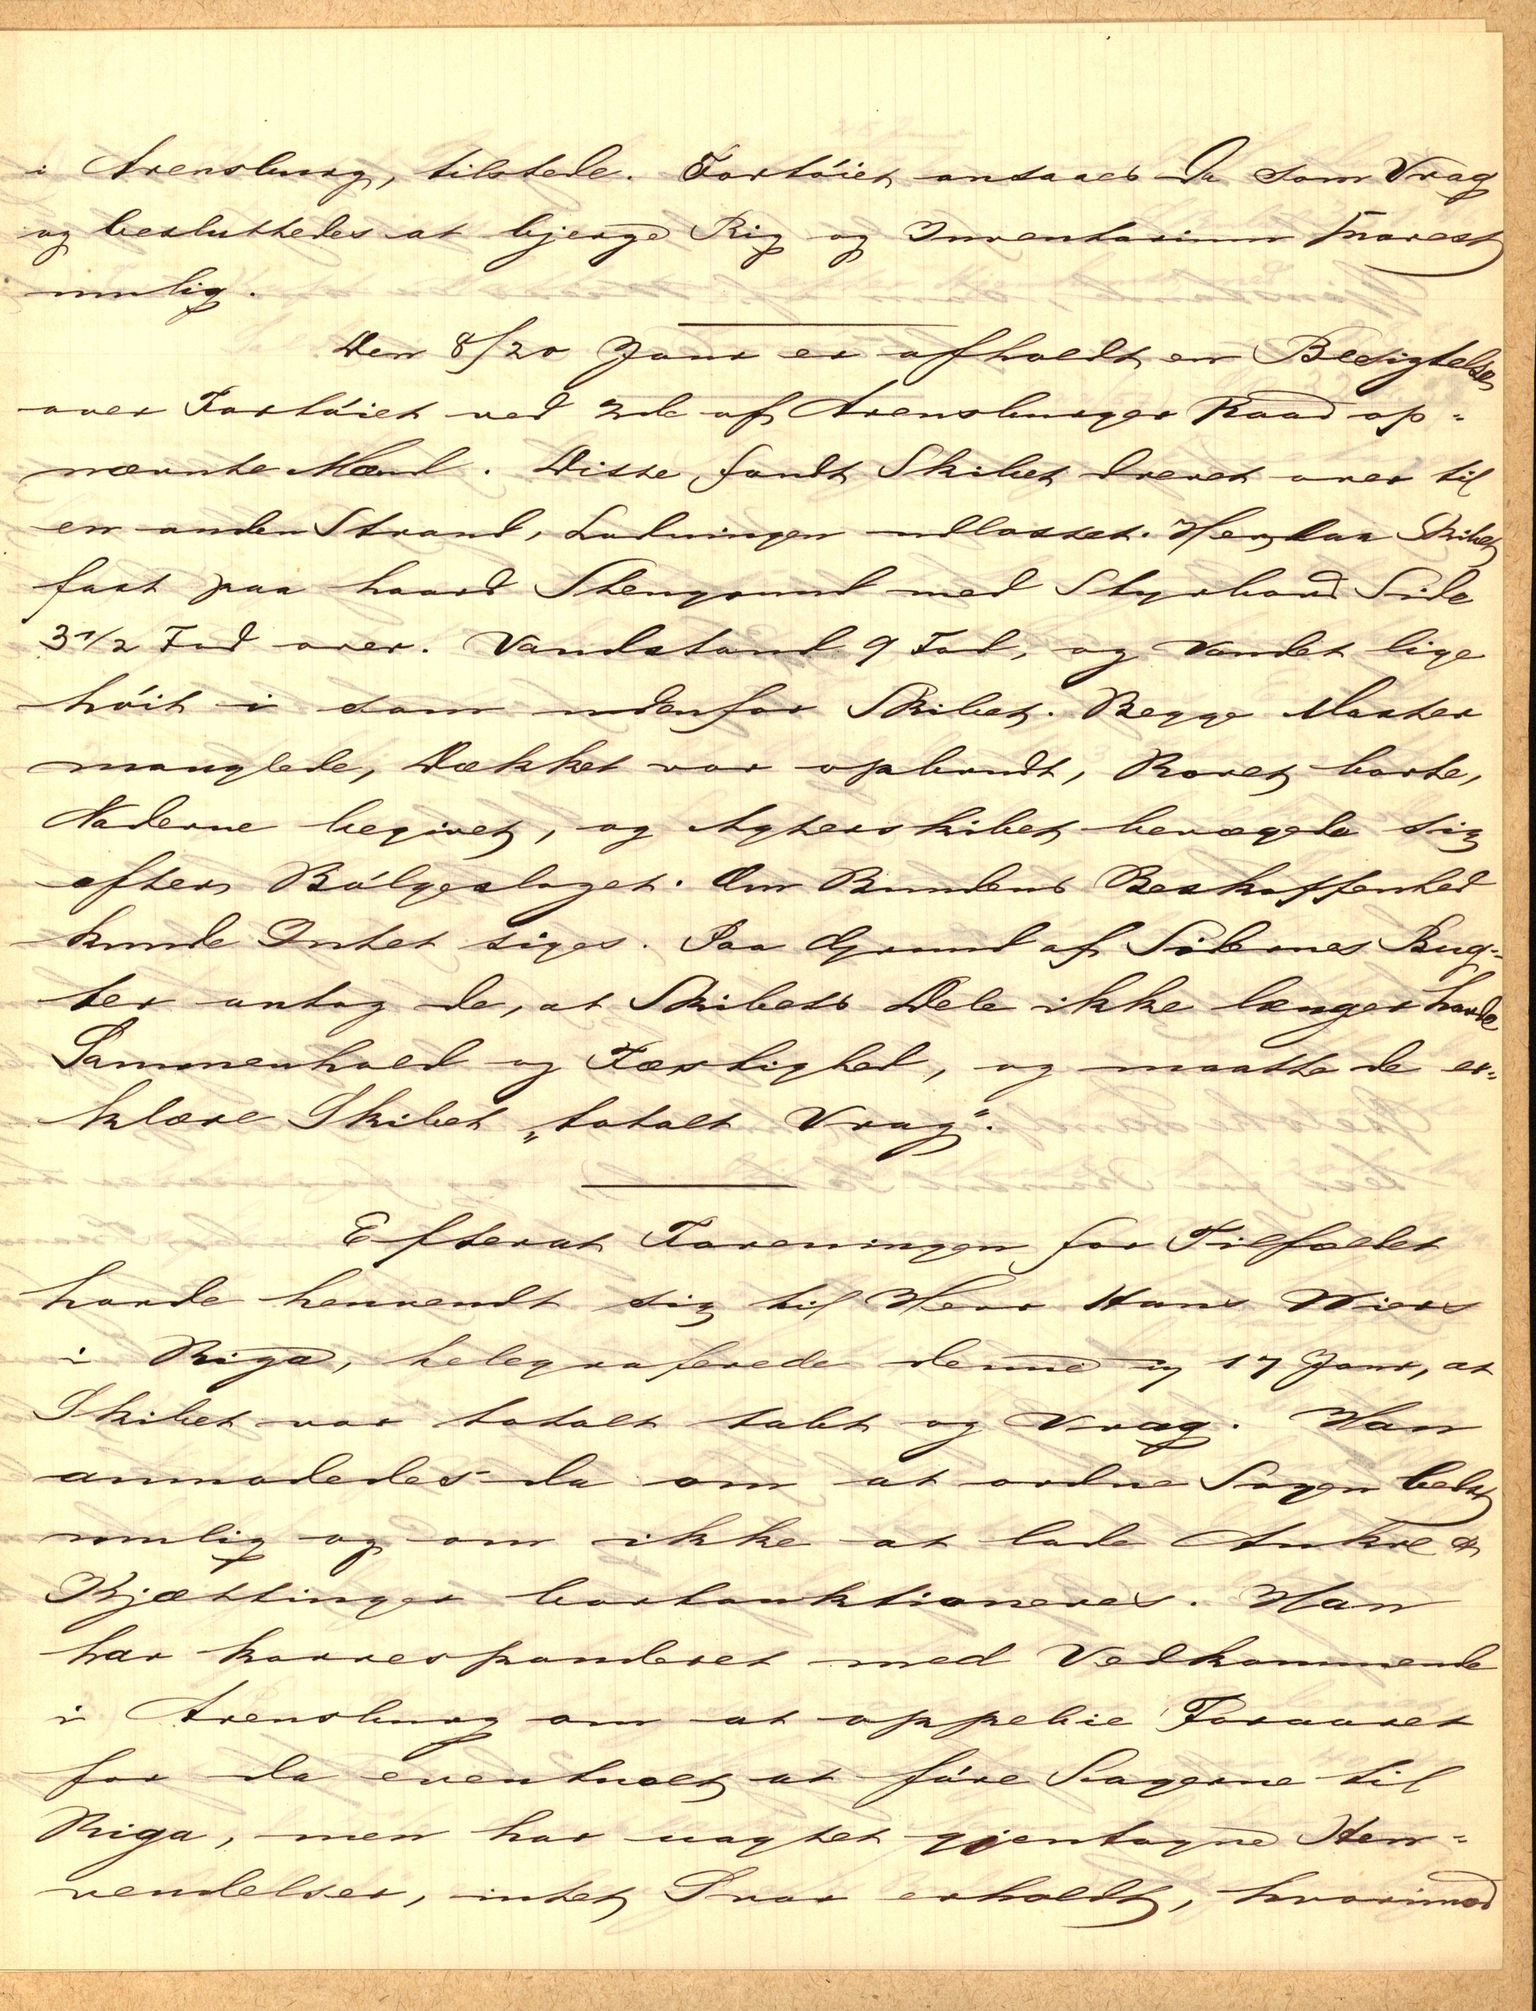 i Arensburg, tilstede. Fartöiet ansaaes da som Vrag
og besluttedes at bjerge Rig og Inventarium snarest
mulig.
Den 8/20 Janr er afholdt en Besigtelse
over Fartöiet ved 3de af Arensburger Raad op=
nævnte Mænd. Disse fandt Skibet drevet over til
en anden Strand, Ladningen udlosset. Her laa Skibet
fast paa haard Stengrund med Styrbord Side
3 1/2 Fod over. Vandstand 9 Fod, og Vandet lige
höit i som udenfor Skibet. Begge Master
manglede, Dækket var opbrudt, Roret borte,
Naderne begivet, og Agterskibet bevægede sig
efter Bölgeslaget. Om Bundens Beskaffenhed
kunde Intet siges. Paa Grund af Sidernes Bug=
ter antog de, at Skibets Dele ikke længer havde
Sammenhold og Fæstighed, og maatte de er=
klære Skibet „totalt Vrag".
Efterat Foreningen for Tilfældet
havde henvendt sig til Herr Hans Wiers
i Riga, telegraferede denne 17 Janr, at
Skibet var totalt tabt og Vrag. Han
anmodedes da om at ordne Sagen bedst
mulig og om ikke at lade Ankre &
Kjættinger bortauktioneres. Han
har korresponderet med Vedkommende
i Arensburg om at oppebie Foraaret
for da eventuelt at före Sagerne til
Riga, men har uagtet gjentagne Hen=
vendelser, intet Svar erholdt, hvorimod